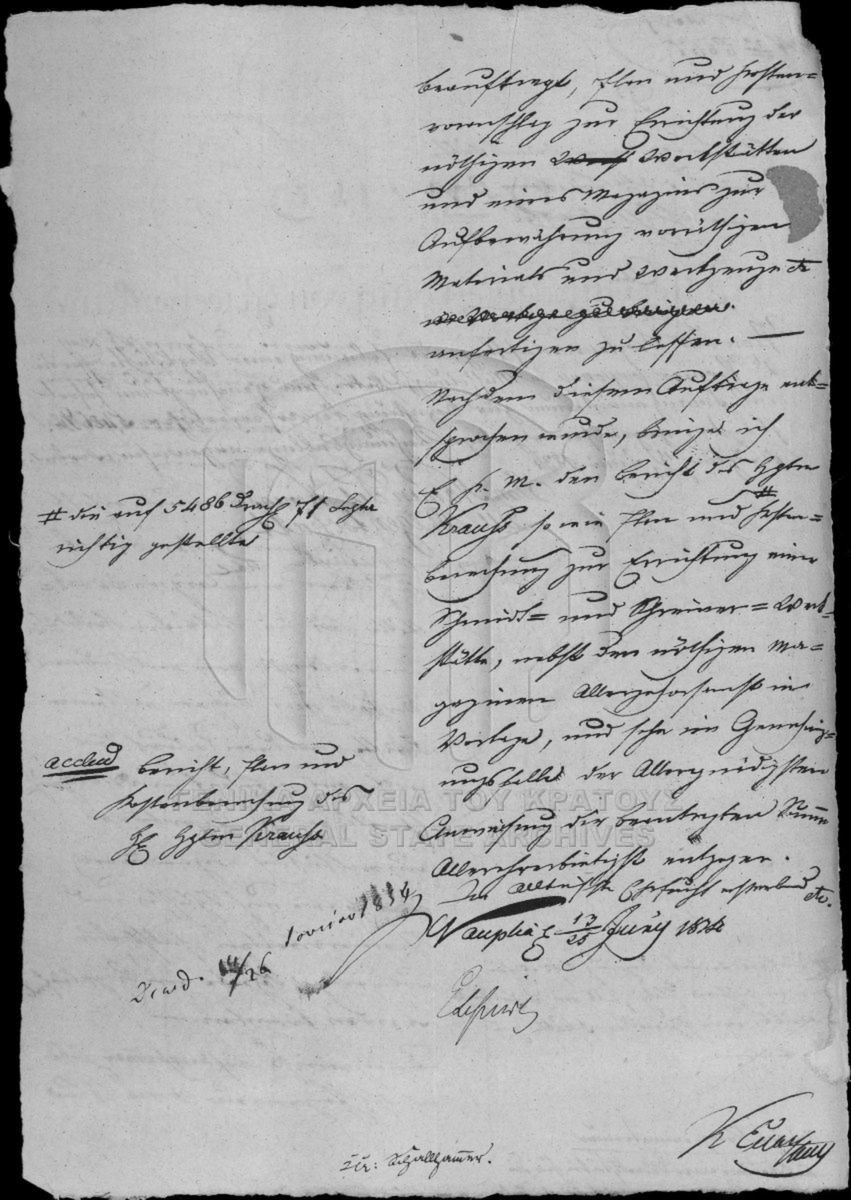 beauftragt, Plan und Kosten=
voranschlag zur Errichtung der
nöthigen Werkstätten
und eines Magazins zur
Aufbewahrung vorräthigen
Materials und Werkzeuge etc
anfertigen zu lassen. —
Nachdem diesem Auftrage ent=
sprochen wurde, bringe ich
E. K. M. den Bericht des Hptm
Krauss so wie Plan und # Kosten=
berechnung zur Errichtung einer
Schmidt= und Schreiner=Werk=
stätte, nebst den nöthigen Ma=
gazinen allergehorsamst in
Vorlage, und sehe im Genehmig=
ungsfalle der Allergnädigsten
Anweisung der beantragten Summe
allerehrerbietigst entgegen.
In allertiefster Ehrfurcht ersterbend etc.
Nauplia 13/25 Juny 1834
# die auf 5486 Drach 71 Lepta
richtig gestellte
acclud Bericht, Plan und
Kostenberechnung des
H. Hptm Krauss
14/26 Ιουνίου 1834
ΓΕΝΙΚΑ ΑΡΧΕΙΑ ΤΟΥ ΚΡΑΤΟΥΣ
GENERAL STATE ARCHIVES
Schallhammer.